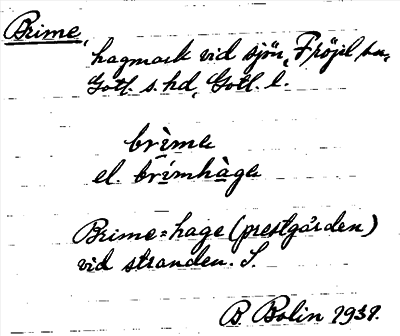 Brime,
hagmark vid sjön, Fröjel sn,
Gotl. s. hd, Gotl. l.
brìme
el. brímhàge
Brime=hage (prestgården)
vid stranden. S.
B Bolin 1939.